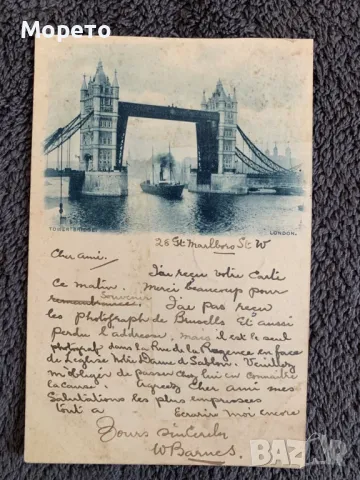 Морето
TOWER BRIDGE.
LONDON.
26 Gt. Marlboro St. W
Cher ami.
J'ai reçu votre Carte
ce matin. Merci beaucoup pour
Souvenir
J'ai pas reçu
les photograph de Bruxells Et aussi
perdu l'addresse, mais il est le seul
photograf dans la Rue de la Regence en face
de L'église Notre Dame d Sablon. Veuillez
m'obliger de passer chez lui en
la cause. Agreéz Cher ami mes
Salutations les plus empressées
tout a
Ecrivez moi encore
Yours sincerely
W Barnes.
BAZAR
bg